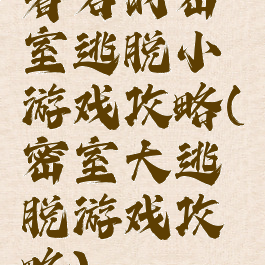 着名的密
室逃脱小
游戏攻略(
密室大逃
脱游戏攻
略)